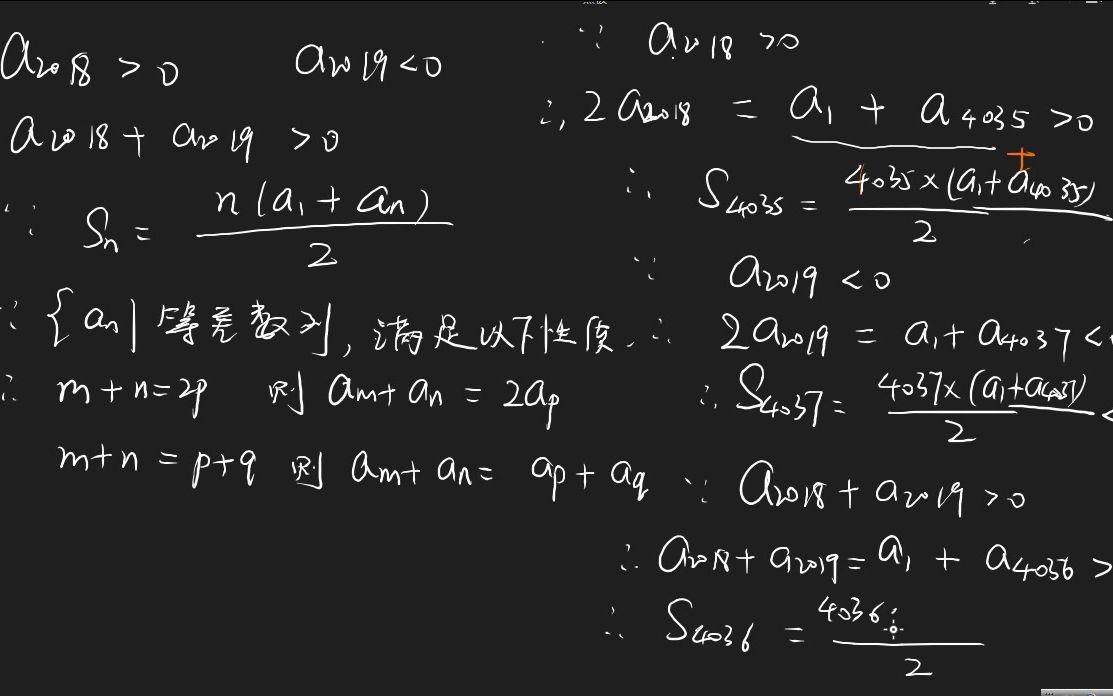 a₂₀₁₈ > 0  a₂₀₁₉ < 0
a₂₀₁₈ + a₂₀₁₉ > 0
∵ Sₙ = n(a₁ + aₙ) / 2
∵ {aₙ} 等差数列, 满足以下性质.
∴ m + n = 2p 则 aₘ + aₙ = 2aₚ
m + n = p + q 则 aₘ + aₙ = aₚ + a_q
∵ a₂₀₁₈ > 0
∴ 2a₂₀₁₈ = a₁ + a₄₀₃₅ > 0
+
∴ S₄₀₃₅ = 4035 × (a₁ + a₄₀₃₅) / 2
∵ a₂₀₁₉ < 0
∴ 2a₂₀₁₉ = a₁ + a₄₀₃₇ <
∴ S₄₀₃₇ = 4037 × (a₁ + a₄₀₃₇) / 2 <
∵ a₂₀₁₈ + a₂₀₁₉ > 0
∴ a₂₀₁₈ + a₂₀₁₉ = a₁ + a₄₀₃₆ >
∴ S₄₀₃₆ = 4036 / 2